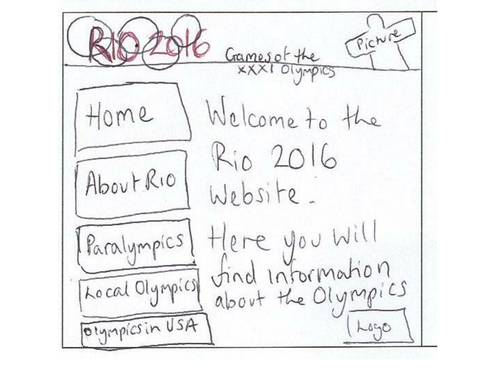 RIO 2016
Games of the
XXXI Olympics
Picture
Home
About Rio
Paralympics
Local Olympics
Olympics in USA
Welcome to the
Rio 2016
Website.
Here you will
find information
about the Olympics
Logo